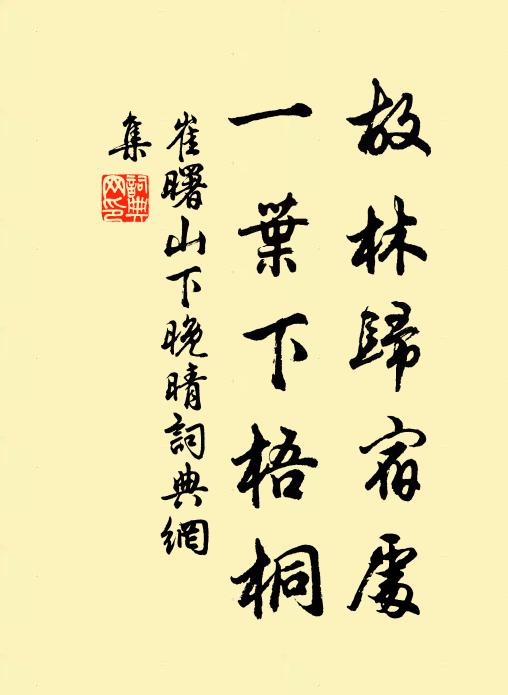 故林歸宿處
一葉下梧桐
崔曙山下晚晴詞典網
集
詞典
網印